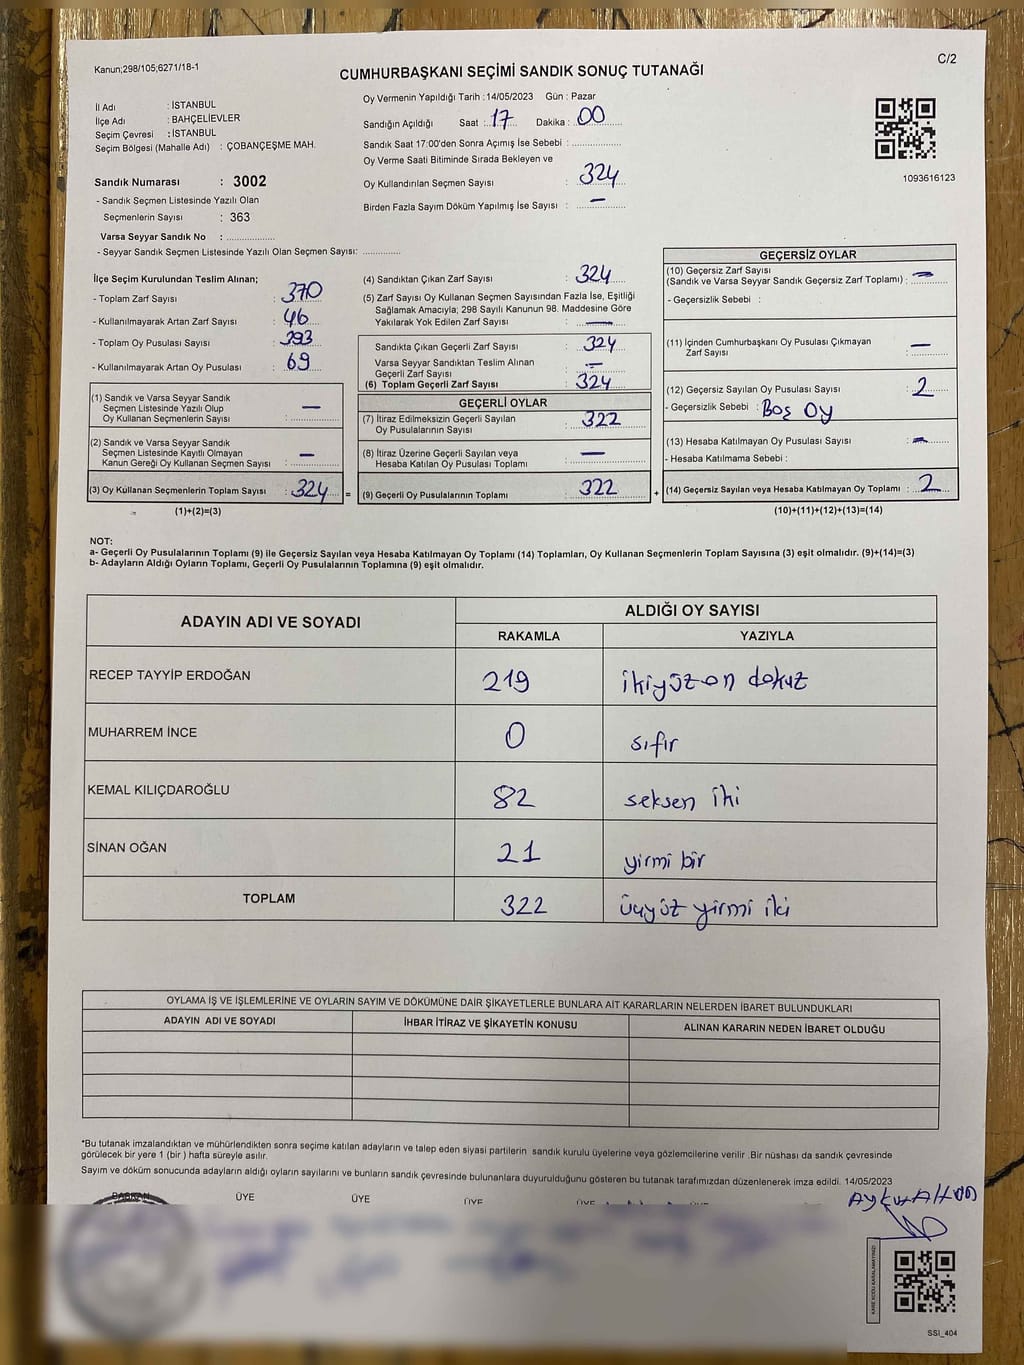 Kanun;298/105;6271/18-1
C/2
CUMHURBAŞKANI SEÇİMİ SANDIK SONUÇ TUTANAĞI
İl Adı : İSTANBUL
İlçe Adı : BAHÇELİEVLER
Seçim Çevresi : İSTANBUL
Seçim Bölgesi (Mahalle Adı) : ÇOBANÇEŞME MAH.
Sandık Numarası : 3002
- Sandık Seçmen Listesinde Yazılı Olan
Seçmenlerin Sayısı : 363
Varsa Seyyar Sandık No : ................
- Seyyar Sandık Seçmen Listesinde Yazılı Olan Seçmen Sayısı: .............
Oy Vermenin Yapıldığı Tarih :14/05/2023 Gün : Pazar
Sandığın Açıldığı Saat : 17 Dakika : 00
Sandık Saat 17:00'den Sonra Açımış İse Sebebi : ................
Oy Verme Saati Bitiminde Sırada Bekleyen ve
Oy Kullandırılan Seçmen Sayısı : 324
Birden Fazla Sayım Döküm Yapılmış İse Sayısı : —
1093616123
İlçe Seçim Kurulundan Teslim Alınan;
- Toplam Zarf Sayısı : 370
- Kullanılmayarak Artan Zarf Sayısı : 46
- Toplam Oy Pusulası Sayısı : 393
- Kullanılmayarak Artan Oy Pusulası : 69
(1) Sandık ve Varsa Seyyar Sandık
Seçmen Listesinde Yazılı Olup
Oy Kullanan Seçmenlerin Sayısı : —
(2) Sandık ve Varsa Seyyar Sandık
Seçmen Listesinde Kayıtlı Olmayan
Kanun Gereği Oy Kullanan Seçmen Sayısı : —
(3) Oy Kullanan Seçmenlerin Toplam Sayısı : 324 =
(1)+(2)=(3)
(4) Sandıktan Çıkan Zarf Sayısı : 324
(5) Zarf Sayısı Oy Kullanan Seçmen Sayısından Fazla İse, Eşitliği
Sağlamak Amacıyla; 298 Sayılı Kanunun 98. Maddesine Göre
Yakılarak Yok Edilen Zarf Sayısı : —
Sandıkta Çıkan Geçerli Zarf Sayısı : 324
Varsa Seyyar Sandıktan Teslim Alınan
Geçerli Zarf Sayısı : —
(6) Toplam Geçerli Zarf Sayısı : 324
GEÇERLİ OYLAR
(7) İtiraz Edilmeksizin Geçerli Sayılan
Oy Pusulalarının Sayısı : 322
(8) İtiraz Üzerine Geçerli Sayılan veya
Hesaba Katılan Oy Pusulası Toplamı : —
(9) Geçerli Oy Pusulalarının Toplamı : 322 +
GEÇERSİZ OYLAR
(10) Geçersiz Zarf Sayısı
(Sandık ve Varsa Seyyar Sandık Geçersiz Zarf Toplamı) : —
- Geçersizlik Sebebi :
(11) İçinden Cumhurbaşkanı Oy Pusulası Çıkmayan
Zarf Sayısı : —
(12) Geçersiz Sayılan Oy Pusulası Sayısı : 2
- Geçersizlik Sebebi : Boş Oy
(13) Hesaba Katılmayan Oy Pusulası Sayısı : —
- Hesaba Katılmama Sebebi :
(14) Geçersiz Sayılan veya Hesaba Katılmayan Oy Toplamı : 2
(10)+(11)+(12)+(13)=(14)
NOT:
a- Geçerli Oy Pusulalarının Toplamı (9) ile Geçersiz Sayılan veya Hesaba Katılmayan Oy Toplamı (14) Toplamları, Oy Kullanan Seçmenlerin Toplam Sayısına (3) eşit olmalıdır. (9)+(14)=(3)
b- Adayların Aldığı Oyların Toplamı, Geçerli Oy Pusulalarının Toplamına (9) eşit olmalıdır.
ADAYIN ADI VE SOYADI ALDIĞI OY SAYISI
RAKAMLA YAZIYLA
RECEP TAYYİP ERDOĞAN 219 ikiyüzon dokuz
MUHARREM İNCE 0 sıfır
KEMAL KILIÇDAROĞLU 82 seksen iki
SİNAN OĞAN 21 yirmi bir
TOPLAM 322 üçyüz yirmi iki
OYLAMA İŞ VE İŞLEMLERİNE VE OYLARIN SAYIM VE DÖKÜMÜNE DAİR ŞİKAYETLERLE BUNLARA AİT KARARLARIN NELERDEN İBARET BULUNDUKLARI
ADAYIN ADI VE SOYADI İHBAR İTİRAZ VE ŞİKAYETİN KONUSU ALINAN KARARIN NEDEN İBARET OLDUĞU
*Bu tutanak imzalandıktan ve mühürlendikten sonra seçime katılan adayların ve talep eden siyasi partilerin sandık kurulu üyelerine veya gözlemcilerine verilir .Bir nüshası da sandık çevresinde
görülecek bir yere 1 (bir ) hafta süreyle asılır.
Sayım ve döküm sonucunda adayların aldığı oyların sayılarını ve bunların sandık çevresinde bulunanlara duyurulduğunu gösteren bu tutanak tarafımızdan düzenlenerek imza edildi. 14/05/2023
BAŞKAN ÜYE ÜYE ÜYE ÜYE ÜYE
SSI_404